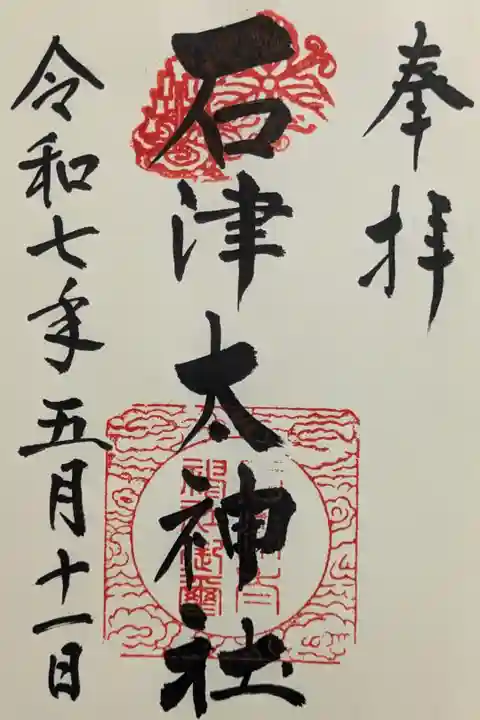 奉拝
石津太神社
令和七年五月十一日